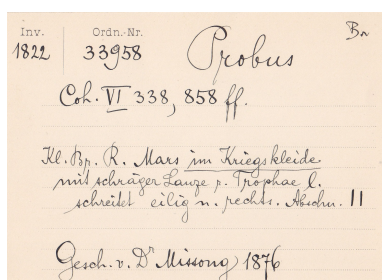 Inv. Ordn.-Nr. Bn
1822 33958 Probus
Coh. VI 338, 858 ff.
Kl. Br. R. Mars im Kriegskleide
mit schräger Lanze r. Trophae l.
schreitet eilig n. rechts. Abschn. II
Gesch. v. Dr Missong 1876